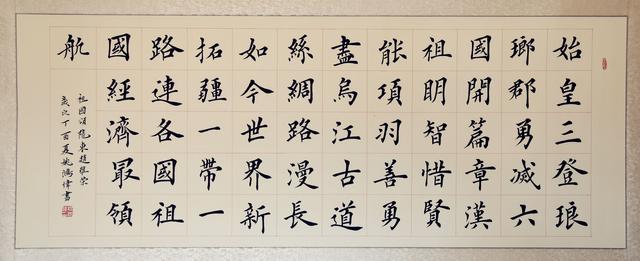 始皇三登琅
瑯郡勇滅六
國開篇章漢
祖明智惜賢
能項羽善勇
盡烏江古道
絲綢路漫長
如今世界新
拓疆一帶一
路連各國祖
國經濟最領
航
祖国頌
歲次丁酉夏姚鴻偉書